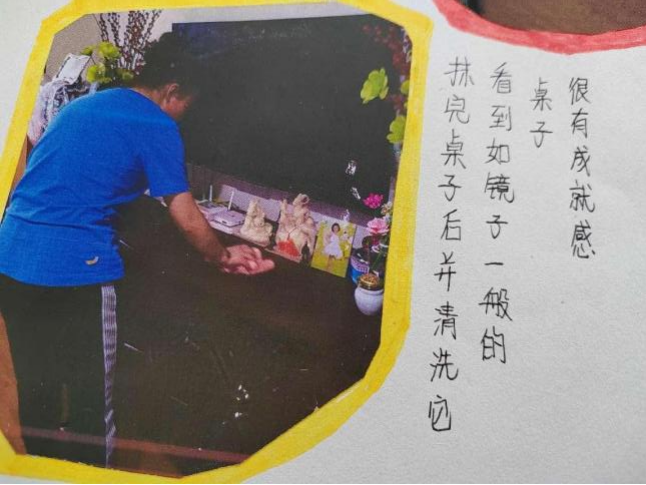 抹完桌子后并清洗它
看到如镜子一般的
桌子
很有成就感